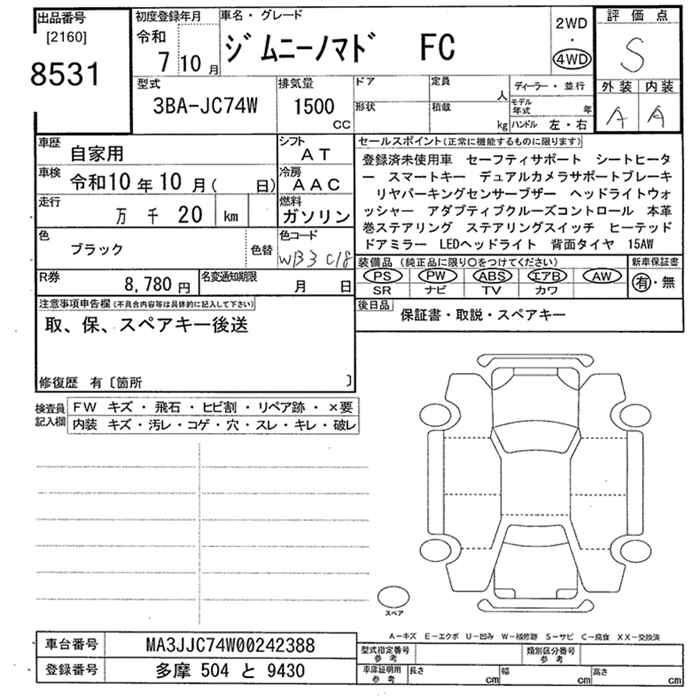 出品番号
[2160]
8531
初度登録年月
令和
7 10 月
車名・グレード
ジムニーノマド FC
2WD
・
4WD
評価点
S
外装 内装
A A
型式
3BA-JC74W
排気量
1500
CC
ドア
形状
定員
人
積載
kg
ディーラー・並行
モデル年式 年
ハンドル 左・右
車歴
自家用
シフト
AT
車検
令和10年10月( 日)
冷房
AAC
走行
万 千 20 km
燃料
ガソリン
色
ブラック
色替
色コード
WB3 C18
R券
8,780 円
名変通知期限
月 日
セールスポイント(正常に機能するものに限ります)
登録済未使用車 セーフティサポート シートヒータ
ー スマートキー デュアルカメラサポートブレーキ
リヤパーキングセンサーブザー ヘッドライトウォ
ッシャー アダプティブクルーズコントロール 本革
巻ステアリング ステアリングスイッチ ヒーテッド
ドアミラー LEDヘッドライト 背面タイヤ 15AW
装備品 (純正品に限り○をつけてください)
PS PW ABS エアB AW
SR ナビ TV カワ
新車保証書
有・無
後日品
保証書・取説・スペアキー
注意事項申告欄(不具合内容等は具体的に記入して下さい)
取、保、スペアキー後送
修復歴 有〔箇所 〕
検査員
記入欄
FW キズ・飛石・ヒビ割・リペア跡・×要
内装 キズ・汚レ・コゲ・穴・スレ・キレ・破レ
スペア
A−キズ E−エクボ U−凹み W−補修跡 S−サビ C−腐食 XX−交換済
車台番号
MA3JJC74W00242388
登録番号
多摩 504 と 9430
型式指定番号
参考
類別区分番号
参考
車庫証明用
参考
長さ cm
幅 cm
高さ cm